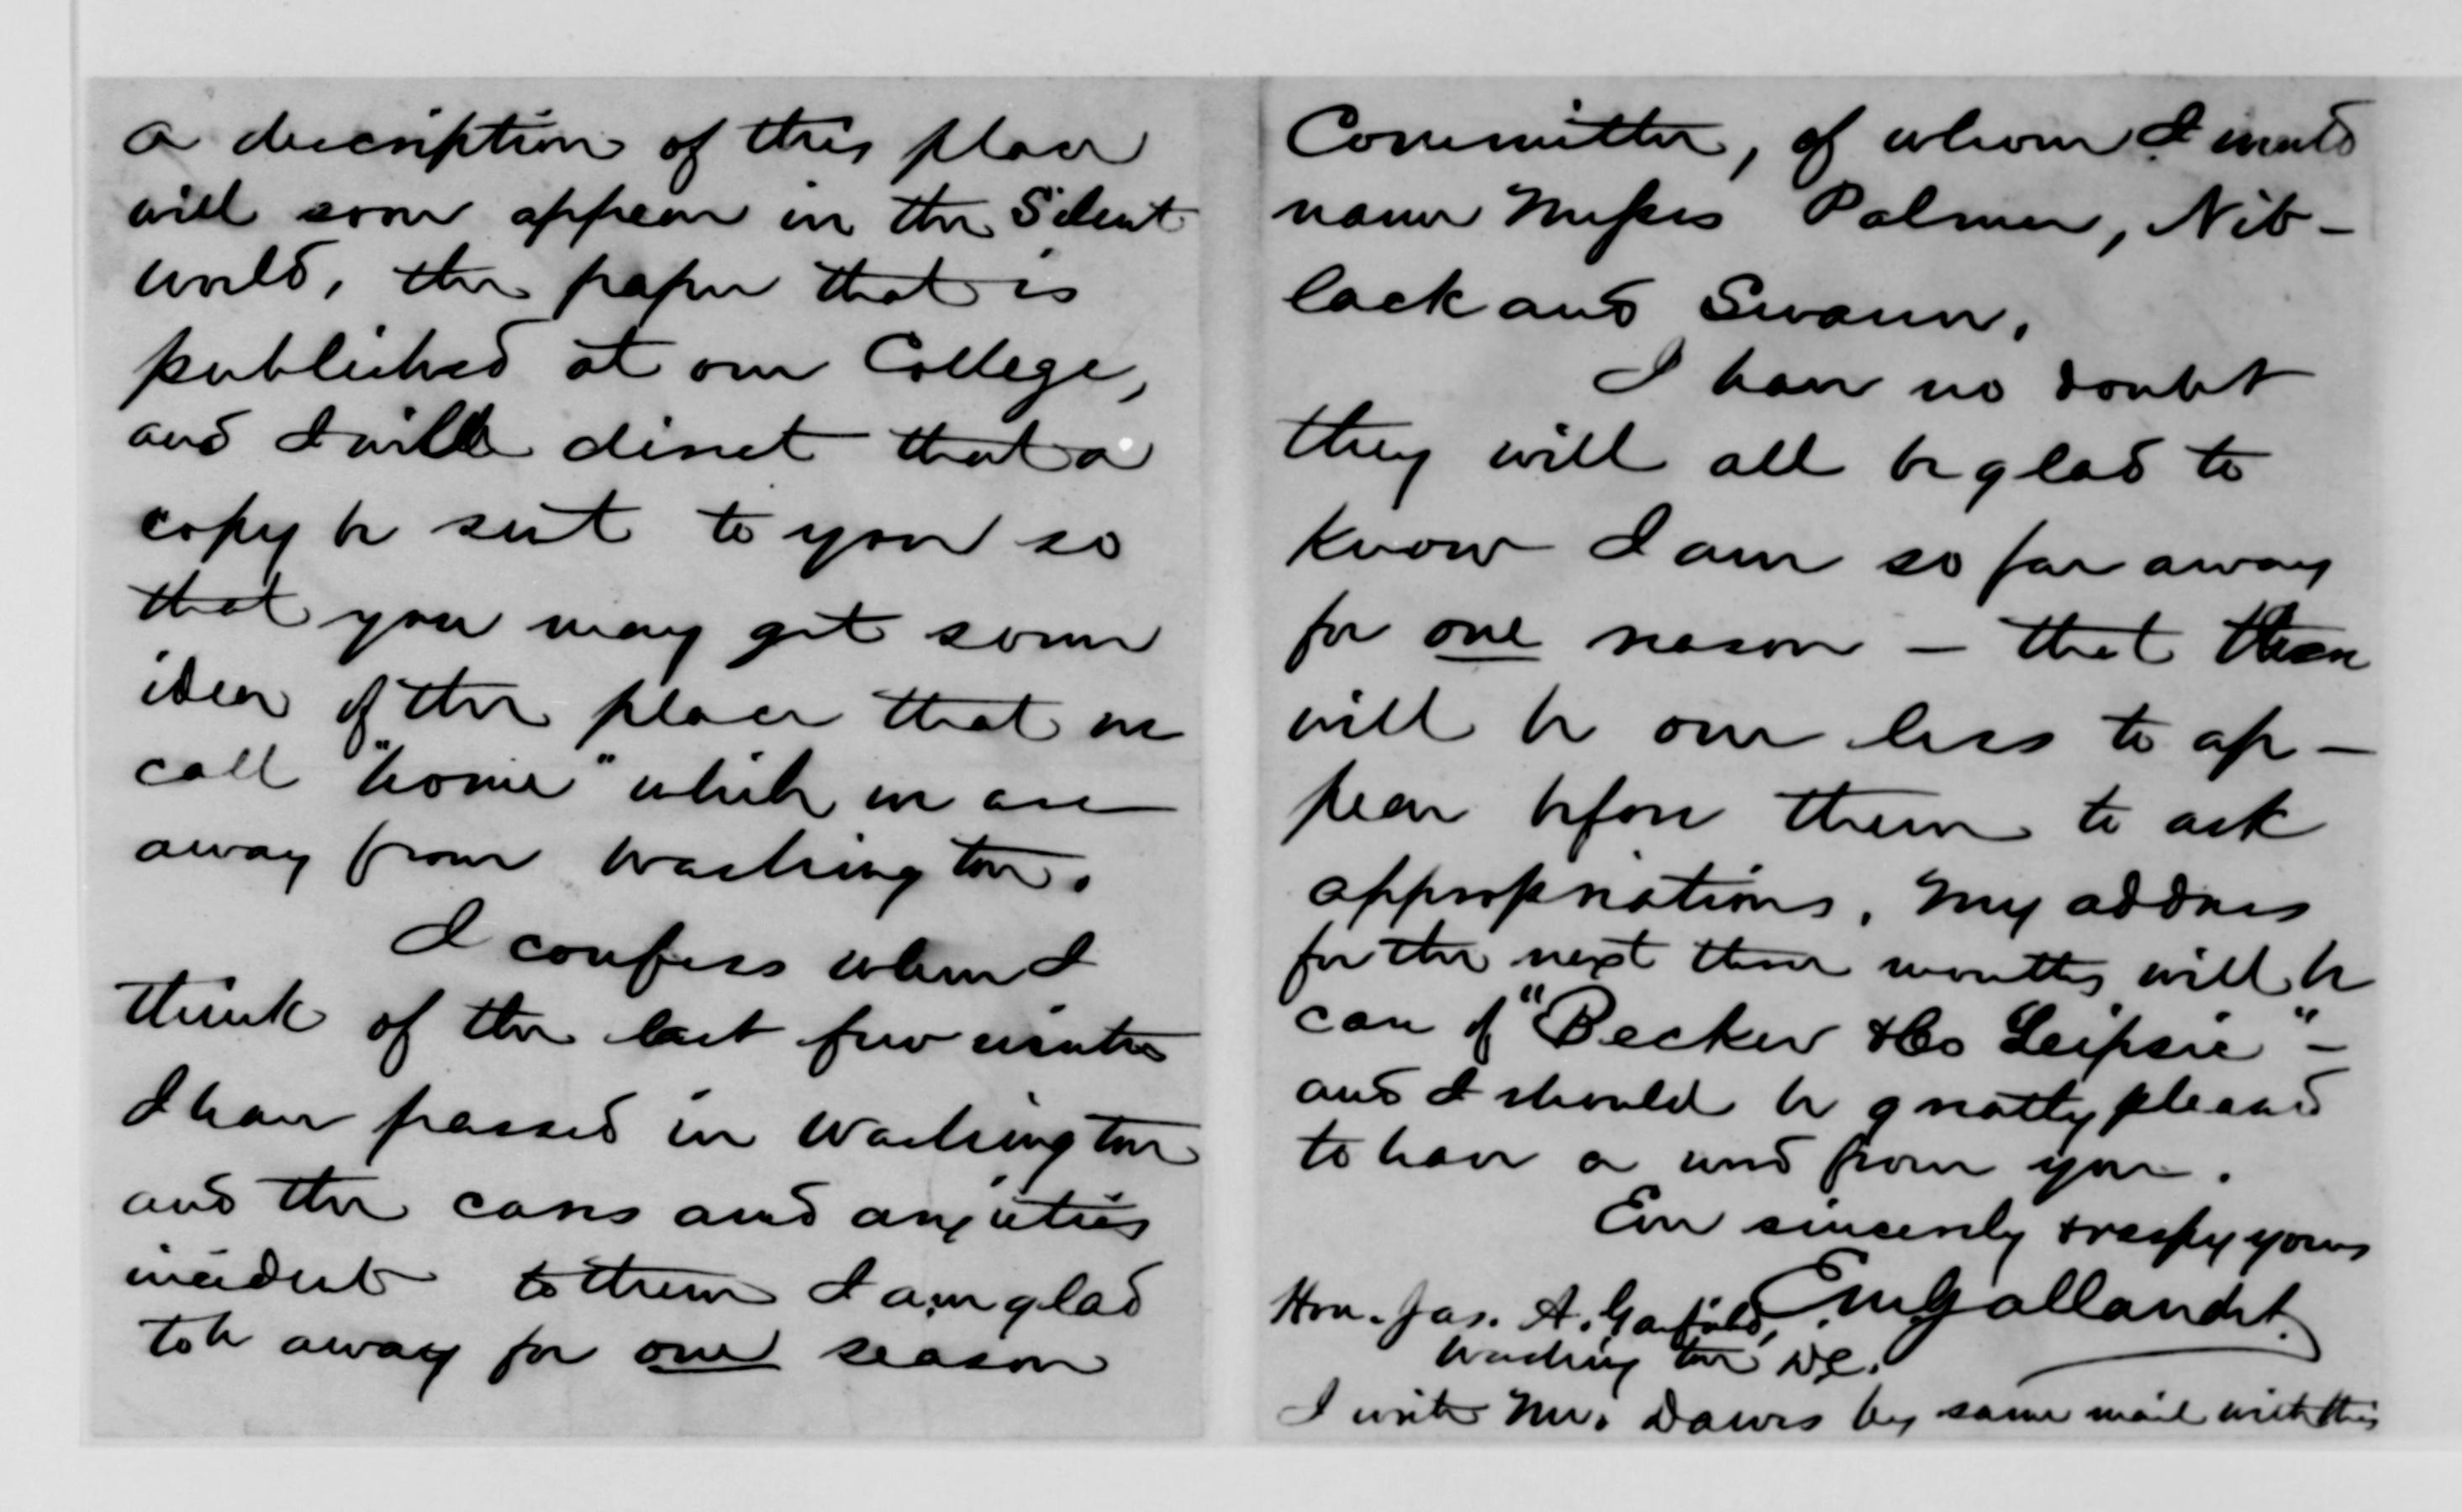 a description of this place
will soon appear in the Silent
world, the paper that is
published at our College,
and I will direct that a
copy be sent to you so
that you may get some
idea of the place that we
call "home" which we are
away from Washington.
I confess when I
think of the last few winters
I have passed in Washington
and the cares and anxieties
incident to them I am glad
to be away for one season
Committee, of whom I would
name Messrs Palmer, Nib-
lack and Swann.
I have no doubt
they will all be glad to
know I am so far away
for one reason – that there
will be one less to ap-
pear before them to ask
appropriations. My address
for the next three months will be
care of "Becker & Co Leipsic" –
and I should be greatly pleased
to have a word from you.
Ever sincerely & respy yours
EMGallaudet.
Hon. Jas. A. Garfield,
Washington DC.
I write Mr. Dawes by same mail with this